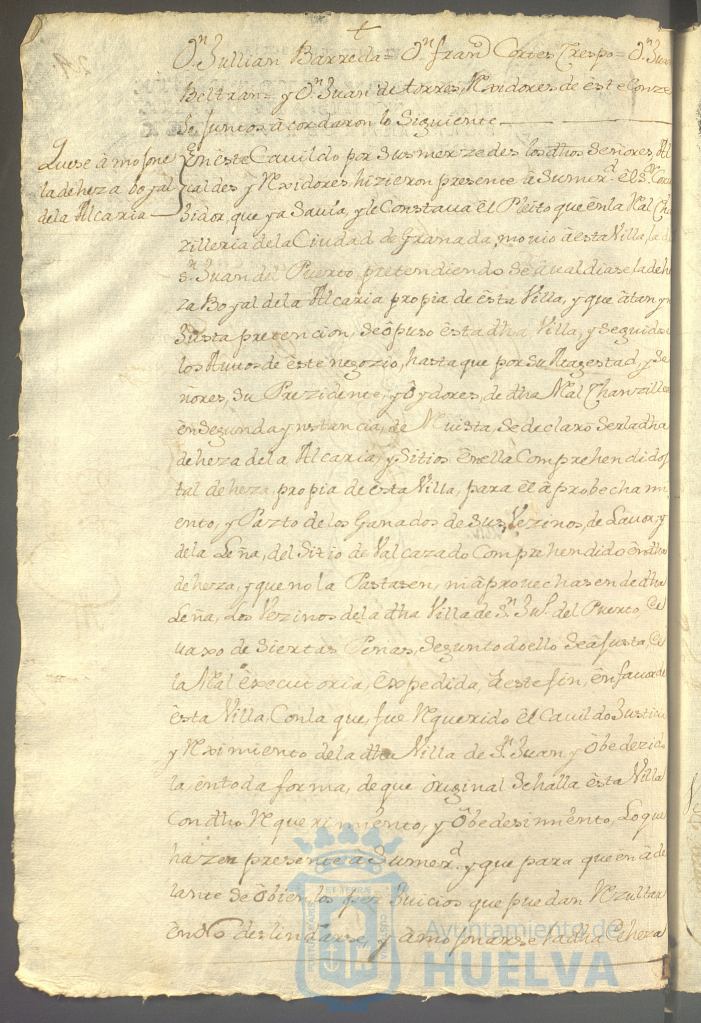 ✝
Dn. Jullian Barreda = Dn. franco Cortes Crespo = Dn. Juan
Beltran = y Dn. Juan de torres, Rexidores de este Conze
Jo Juntos acordaron lo siguiente
Que se amojone
la deheza boyal
de la Alcaria
En este Cavildo por sus merzedes los dhos señores, Al
caldes y Rexidores hizieron presente a su merd. el sr. Corre
xidor, que ya Savia, y le Constava el Pleito que en la Real Chan
zilleria de la Ciudad de Granada, movio a esta Villa, la de
sn. Juan del Puerto pretendiendo se avaldiase la dehe
za Boyal de la Alcaria propia de esta Villa, y que a tan yn
Justa pretencion, se opuso esta dha Villa, y seguidos
los Autos de este negozio, hasta que por su Magestad, y Se
ñores, su Prezidente, y Oydores, de dha Real Chanzilleria
en segunda ynstancia, de Revista, se declaro ser la dha
deheza de la Alcaria, y Sitios en ella Comprehendidos
tal deheza propia de esta Villa, para el aprobecham
iento, y Pazto de los Ganados de sus Vezinos, de Lavor, y
de la Leña, del Sitio de Valcazado Comprehendido en dha
deheza, y que no la Pastasen, ni aprovechasen de dha
Leña, Los Vezinos de la dha Villa de Sn. Ju. del Puerto
vaxo de siertas Penas, segun todo ello se ajusta, de
la Real executoria, expedida, a este fin, en favor de
esta Villa, Con la que, fue Requerido el Cavildo Justicia
y Reximiento de la dha Villa de Sn. Juan y Obedezida
la en toda forma, de que original se halla esta Villa
Con dho Requerimiento, y Obedesimiento, Lo que
hazen presente a Su merd. y que para que en ade
lante se Obien los perJuicios que puedan Rezultar
en No deslindarse, y amojonarse la dha deheza
Ayuntamiento de
HUELVA